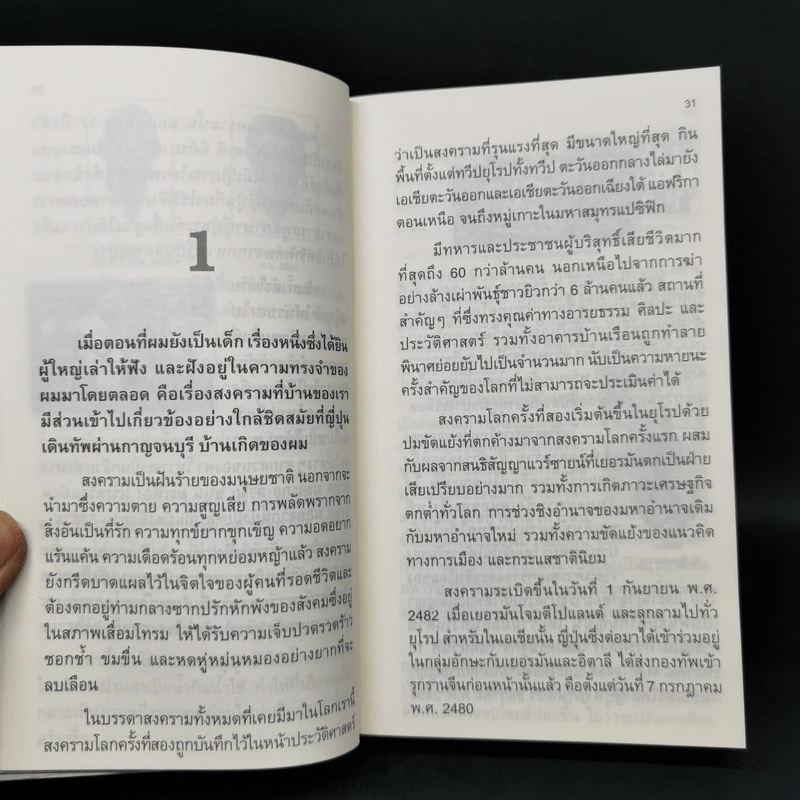 1
เมื่อตอนที่ผมยังเป็นเด็ก เรื่องหนึ่งซึ่งได้ยิน
ผู้ใหญ่เล่าให้ฟัง และฝังอยู่ในความทรงจำของ
ผมมาโดยตลอด คือเรื่องสงครามที่บ้านของเรา
มีส่วนเข้าไปเกี่ยวข้องอย่างใกล้ชิดสมัยที่ญี่ปุ่น
เดินทัพผ่านกาญจนบุรี บ้านเกิดของผม
สงครามเป็นฝันร้ายของมนุษยชาติ นอกจากจะ
นำมาซึ่งความตาย ความสูญเสีย การพลัดพรากจาก
สิ่งอันเป็นที่รัก ความทุกข์ยากขุกเข็ญ ความอดอยาก
แร้นแค้น ความเดือดร้อนทุกหย่อมหญ้าแล้ว สงคราม
ยังกรีดบาดแผลไว้ในจิตใจของผู้คนที่รอดชีวิตและ
ต้องตกอยู่ท่ามกลางซากปรักหักพังของสังคมซึ่งอยู่
ในสภาพเสื่อมโทรม ให้ได้รับความเจ็บปวดรวดร้าว
ชอกช้ำ ขมขื่น และหดหู่หม่นหมองอย่างยากที่จะ
ลบเลือน
ในบรรดาสงครามทั้งหมดที่เคยมีมาในโลกเรานี้
สงครามโลกครั้งที่สองถูกบันทึกไว้ในหน้าประวัติศาสตร์
31
ว่าเป็นสงครามที่รุนแรงที่สุด มีขนาดใหญ่ที่สุด กิน
พื้นที่ตั้งแต่ทวีปยุโรปทั้งทวีป ตะวันออกกลางไล่มายัง
เอเชียตะวันออกและเอเชียตะวันออกเฉียงใต้ แอฟริกา
ตอนเหนือ จนถึงหมู่เกาะในมหาสมุทรแปซิฟิก
มีทหารและประชาชนผู้บริสุทธิ์เสียชีวิตมาก
ที่สุดถึง 60 กว่าล้านคน นอกเหนือไปจากการฆ่า
อย่างล้างเผ่าพันธุ์ชาวยิวกว่า 6 ล้านคนแล้ว สถานที่
สำคัญๆ ที่ซึ่งทรงคุณค่าทางอารยธรรม ศิลปะ และ
ประวัติศาสตร์ รวมทั้งอาคารบ้านเรือนถูกทำลาย
พินาศย่อยยับไปเป็นจำนวนมาก นับเป็นความหายนะ
ครั้งสำคัญของโลกที่ไม่สามารถจะประเมินค่าได้
สงครามโลกครั้งที่สองเริ่มต้นขึ้นในยุโรปด้วย
ปมขัดแย้งที่ตกค้างมาจากสงครามโลกครั้งแรก ผสม
กับผลจากสนธิสัญญาแวร์ซายน์ที่เยอรมันตกเป็นฝ่าย
เสียเปรียบอย่างมาก รวมทั้งการเกิดภาวะเศรษฐกิจ
ตกต่ำทั่วโลก การช่วงชิงอำนาจของมหาอำนาจเดิม
กับมหาอำนาจใหม่ รวมทั้งความขัดแย้งของแนวคิด
ทางการเมือง และกระแสชาตินิยม
สงครามระเบิดขึ้นในวันที่ 1 กันยายน พ.ศ.
2482 เมื่อเยอรมันโจมตีโปแลนด์ และลุกลามไปทั่ว
ยุโรป สำหรับในเอเชียนั้น ญี่ปุ่นซึ่งต่อมาได้เข้าร่วมอยู่
ในกลุ่มอักษะกับเยอรมันและอิตาลี ได้ส่งกองทัพเข้า
รุกรานจีนก่อนหน้านั้นแล้ว คือตั้งแต่วันที่ 7 กรกฎาคม
พ.ศ. 2480